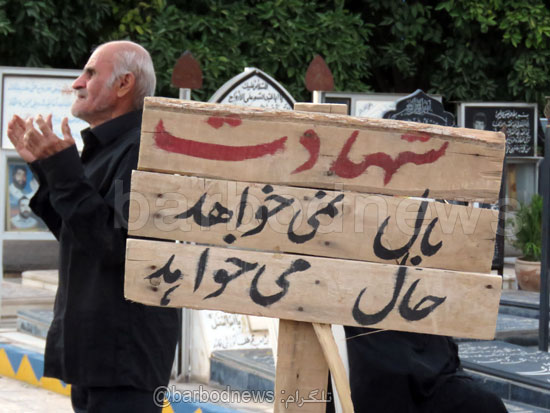 شهادت
بال نمی خواهد
حال می خواهد
barbodnews
تلگرام: @barbodnews